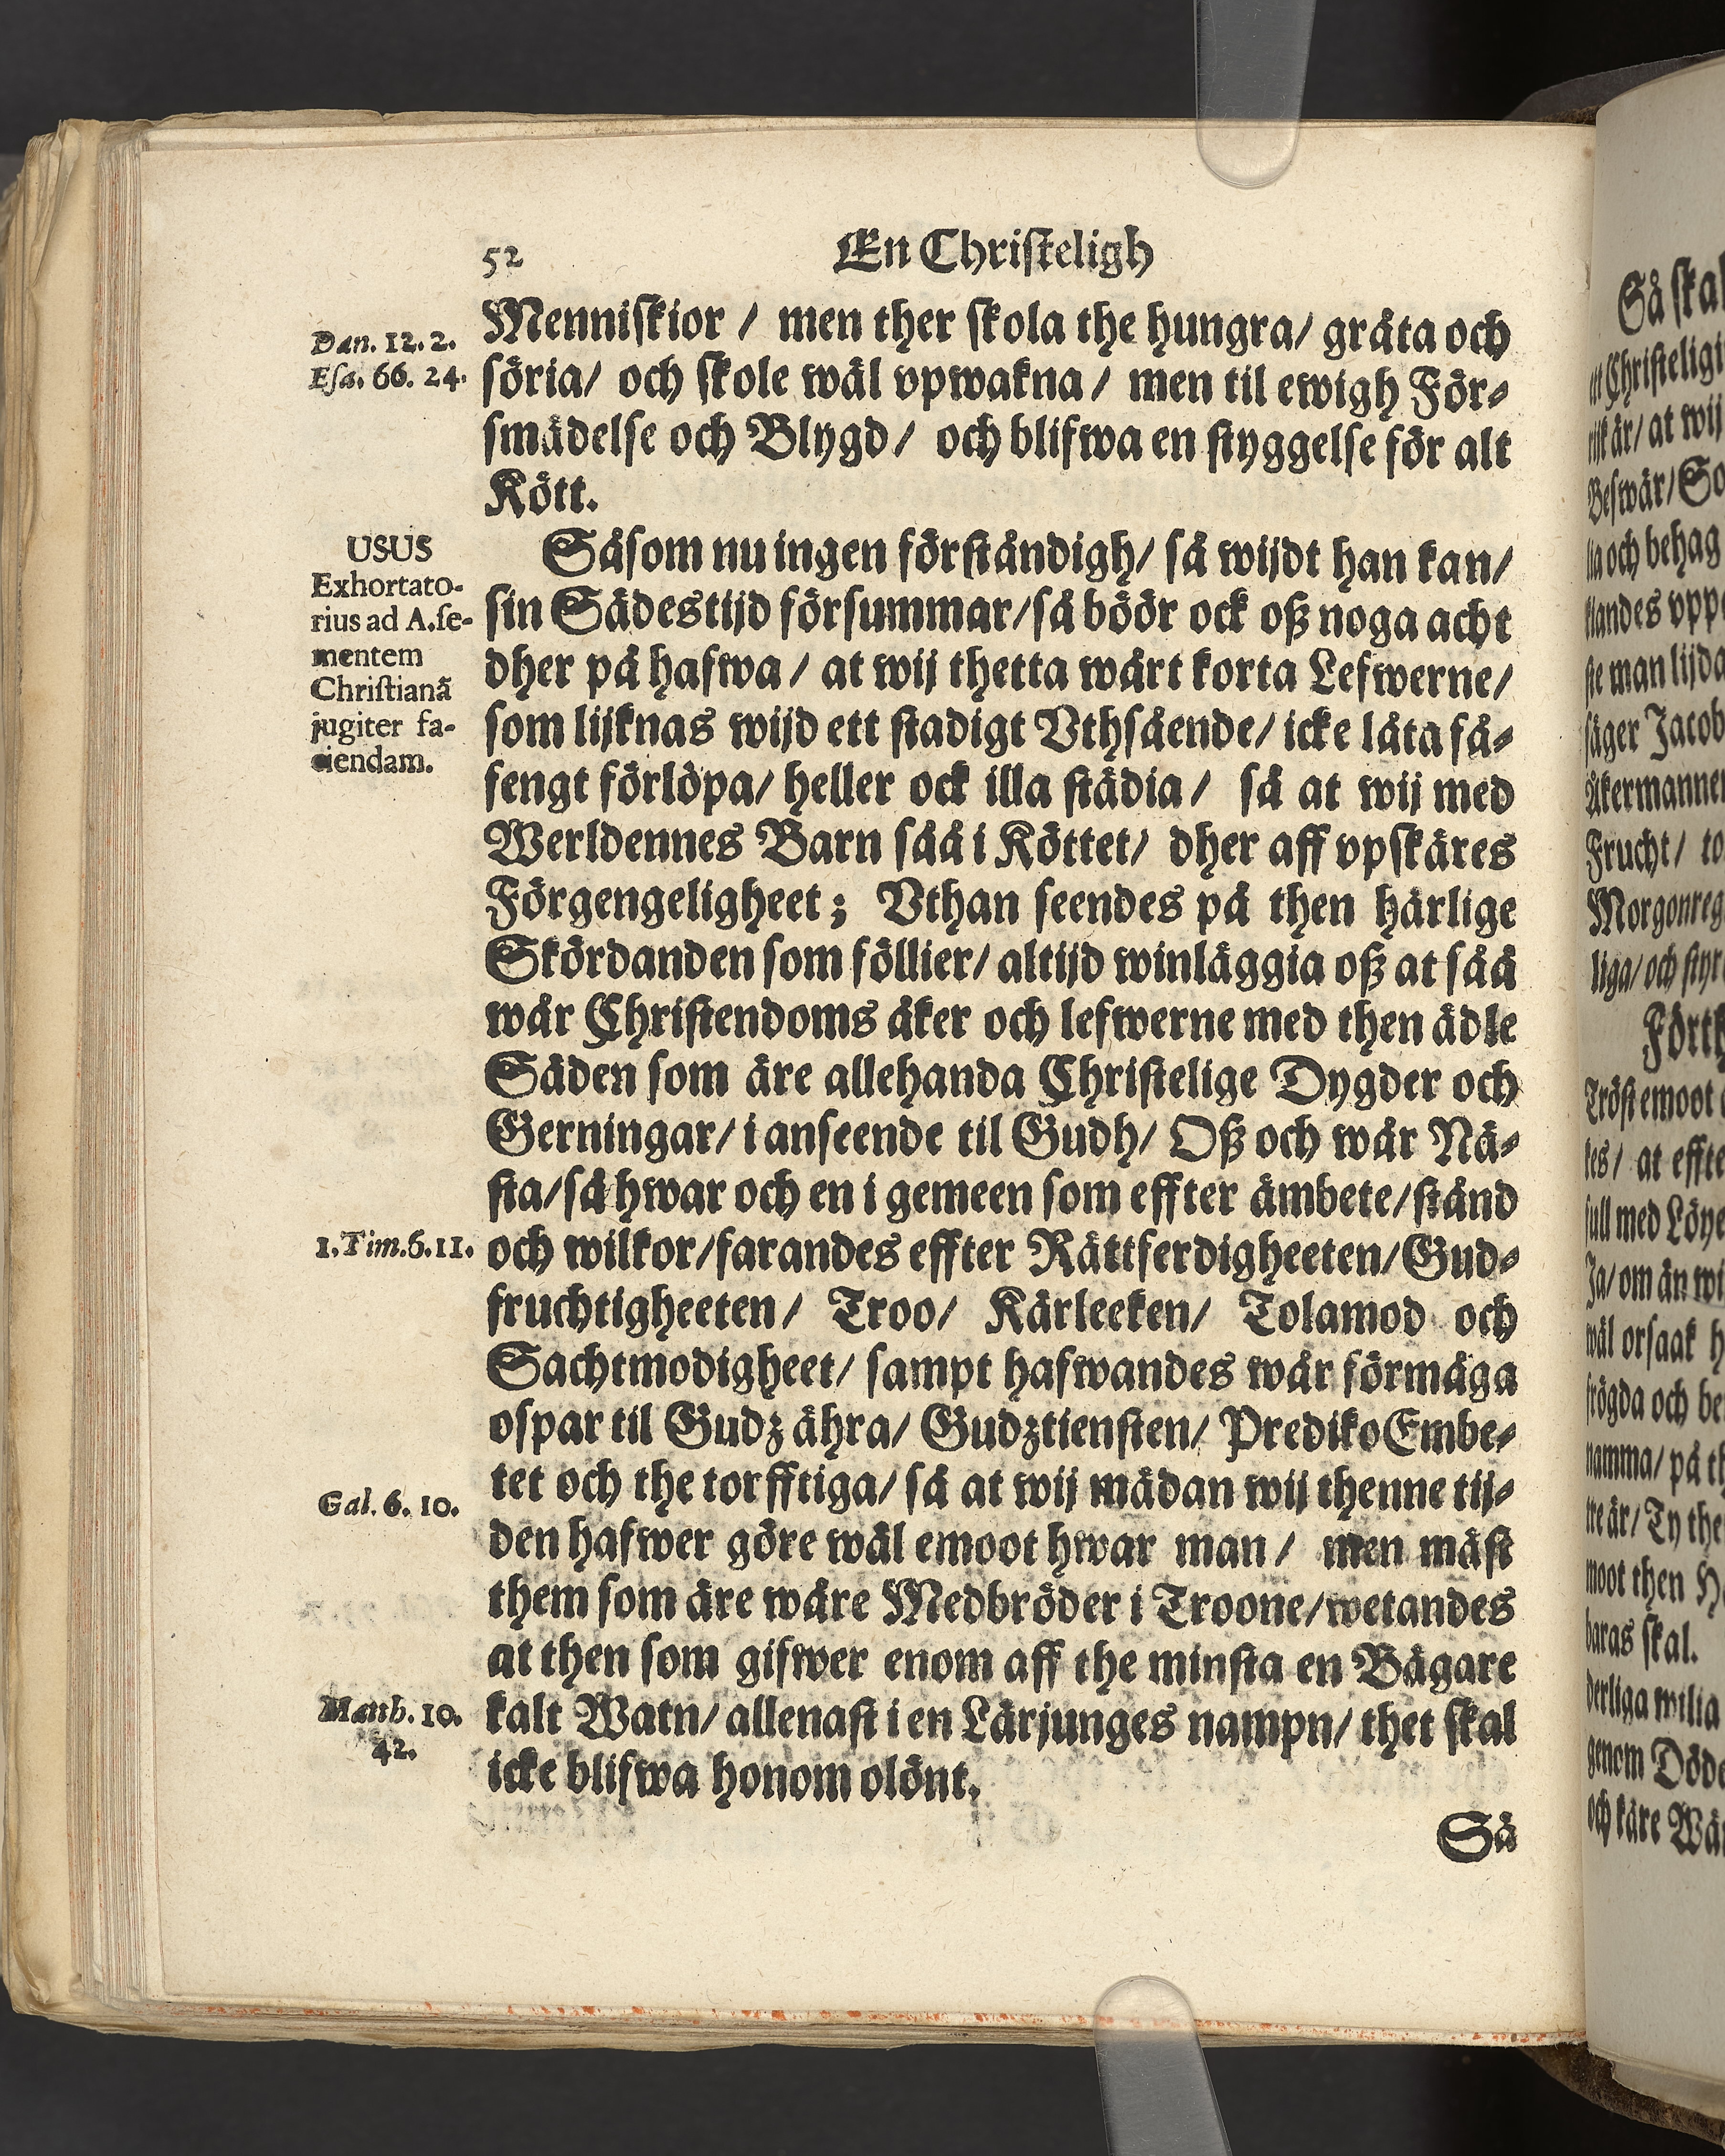 52
En Chriſteligh
Dan. 12. 2.
Eſa. 66. 24.
Menniſkior / men ther ſkola the hungra/ gråta och
ſöria/ och ſkole wäl vpwakna / men til ewigh För⸗
ſmädelſe och Blygd / och blifwa en ſtyggelſe för alt
Kött.
USUS
Exhortato-
rius ad A.ſe-
mentem
Chriſtianã
jugiter fa-
ciendam.
Såſom nu ingen förſtändigh/ så wijdt han kan/
ſin Sädestijd förſummar/ſå böör ock oß noga acht
dher på hafwa / at wij thetta wårt korta Lefwerne/
som lijknas wijd ett ſtadigt Vthſående/ icke låta få⸗
fengt förlöpa/ heller ock illa ſtädia / ſå at wij med
Werldennes Barn såå i Köttet/ dher aff vpſkäres
Förgengeligheet; Vthan ſeendes på then härlige
Skördanden ſom föllier/ altijd winläggia oß at ſåå
wår Chriſtendoms åker och lefwerne med then ädle
Säden ſom äre allehanda Chriſtelige Dygder och
Gerningar/ i anſeende til Gudh/ Oß och wår Nä⸗
ſta/ſå hwar och en i gemeen ſom effter ämbete/ſtånd
1. Tim. 6. 11.
och wilkor/farandes effter Rättferdigheeten/Gud⸗
fruchtigheeten/ Troo/ Kärleeken/ Tolamod och
Sachtmodigheet/ ſampt hafwandes wår förmåga
oſpar til Gudz ähra/ Gudztienſten/ PredikoEmbe⸗
Gal. 6. 10.
tet och the torfftiga/ ſå at wij mädan wij thenne tij⸗
den hafwer göre wäl emoot hwar man / men mäſt
them ſom äre wåre Medbröder i Troone/wetandes
at then ſom gifwer enom aff the minſta en Bägare
Matth. 10.
42.
kalt Watn/ allenaſt i en Lärjunges nampn/ thet ſkal
icke blifwa honom olönt.
Så